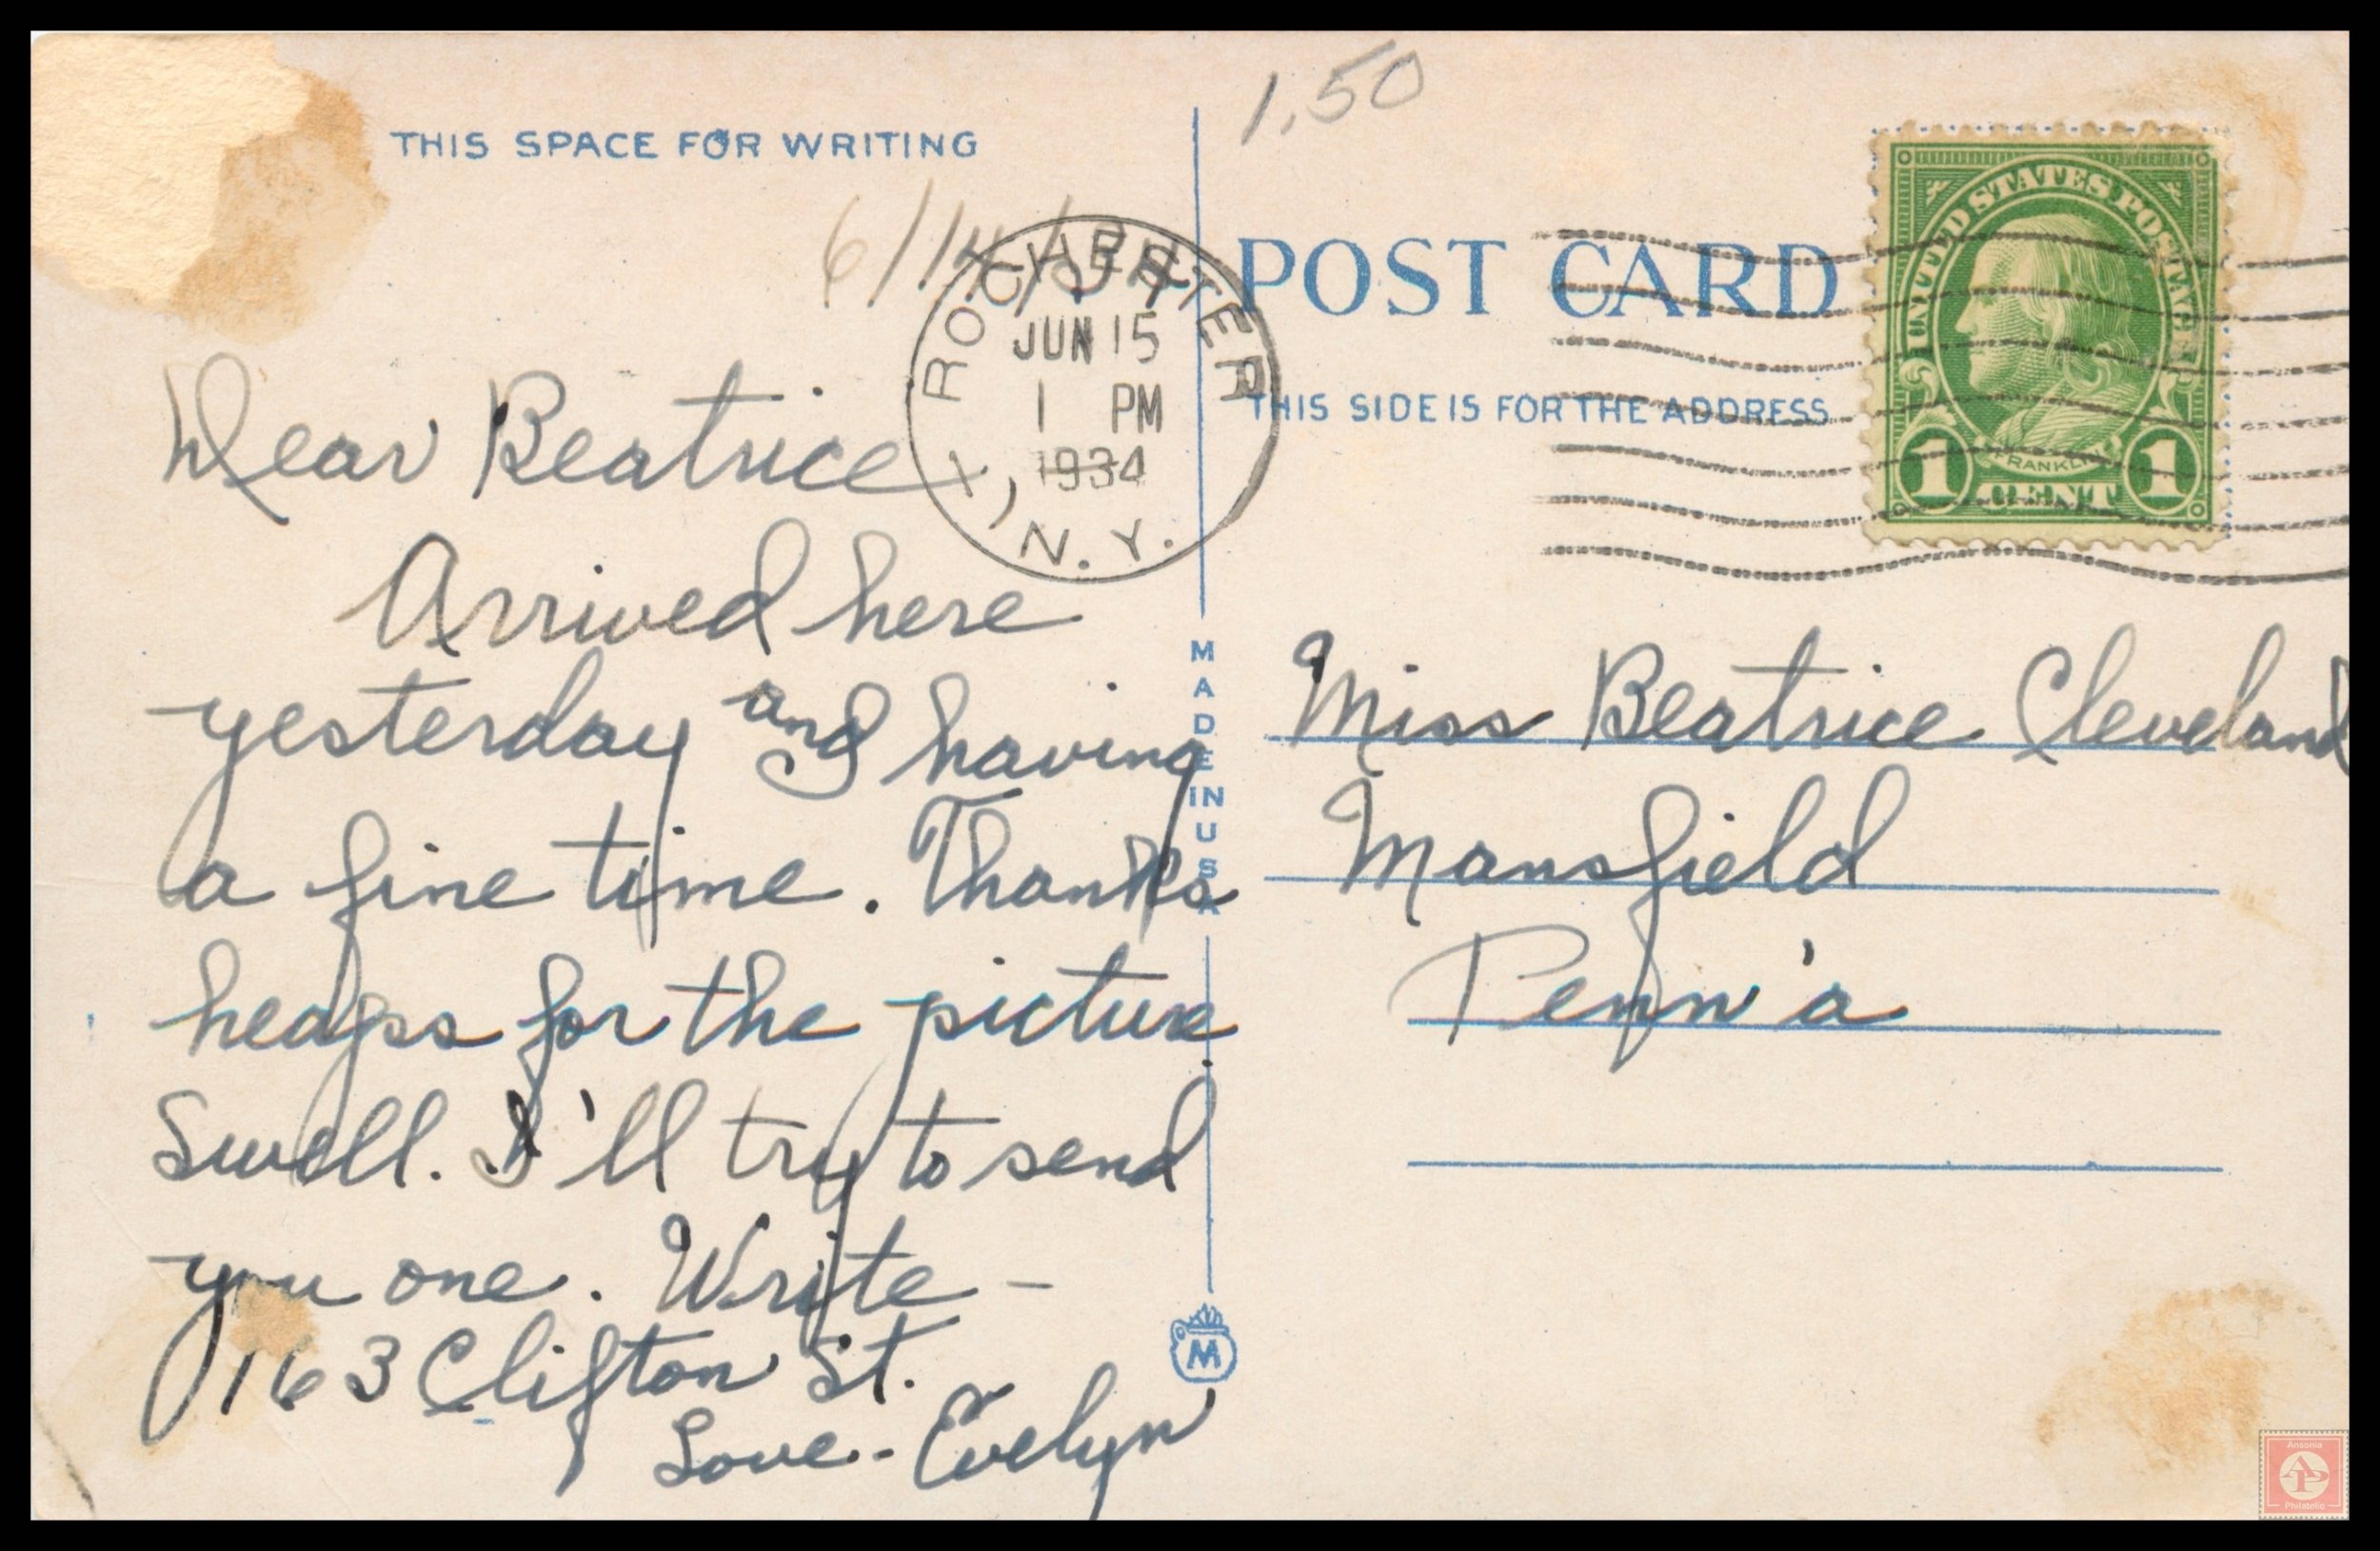 1.50
THIS SPACE FOR WRITING
6/14/34
ROCHESTER, N.Y. 1
JUN 15
1 PM
1934
POST CARD
THIS SIDE IS FOR THE ADDRESS
UNITED STATES POSTAGE
FRANKLIN
1 CENT 1
Dear Beatrice
Arrived here
yesterday and having
a fine time. Thanks
heaps for the picture.
Swell. I'll try to send
you one. Write -
163 Clifton St.
Love - Evelyn
MADE IN USA
M
Miss Beatrice Cleveland
Mansfield
Penn'a
Ansonia
AP
Philatelic